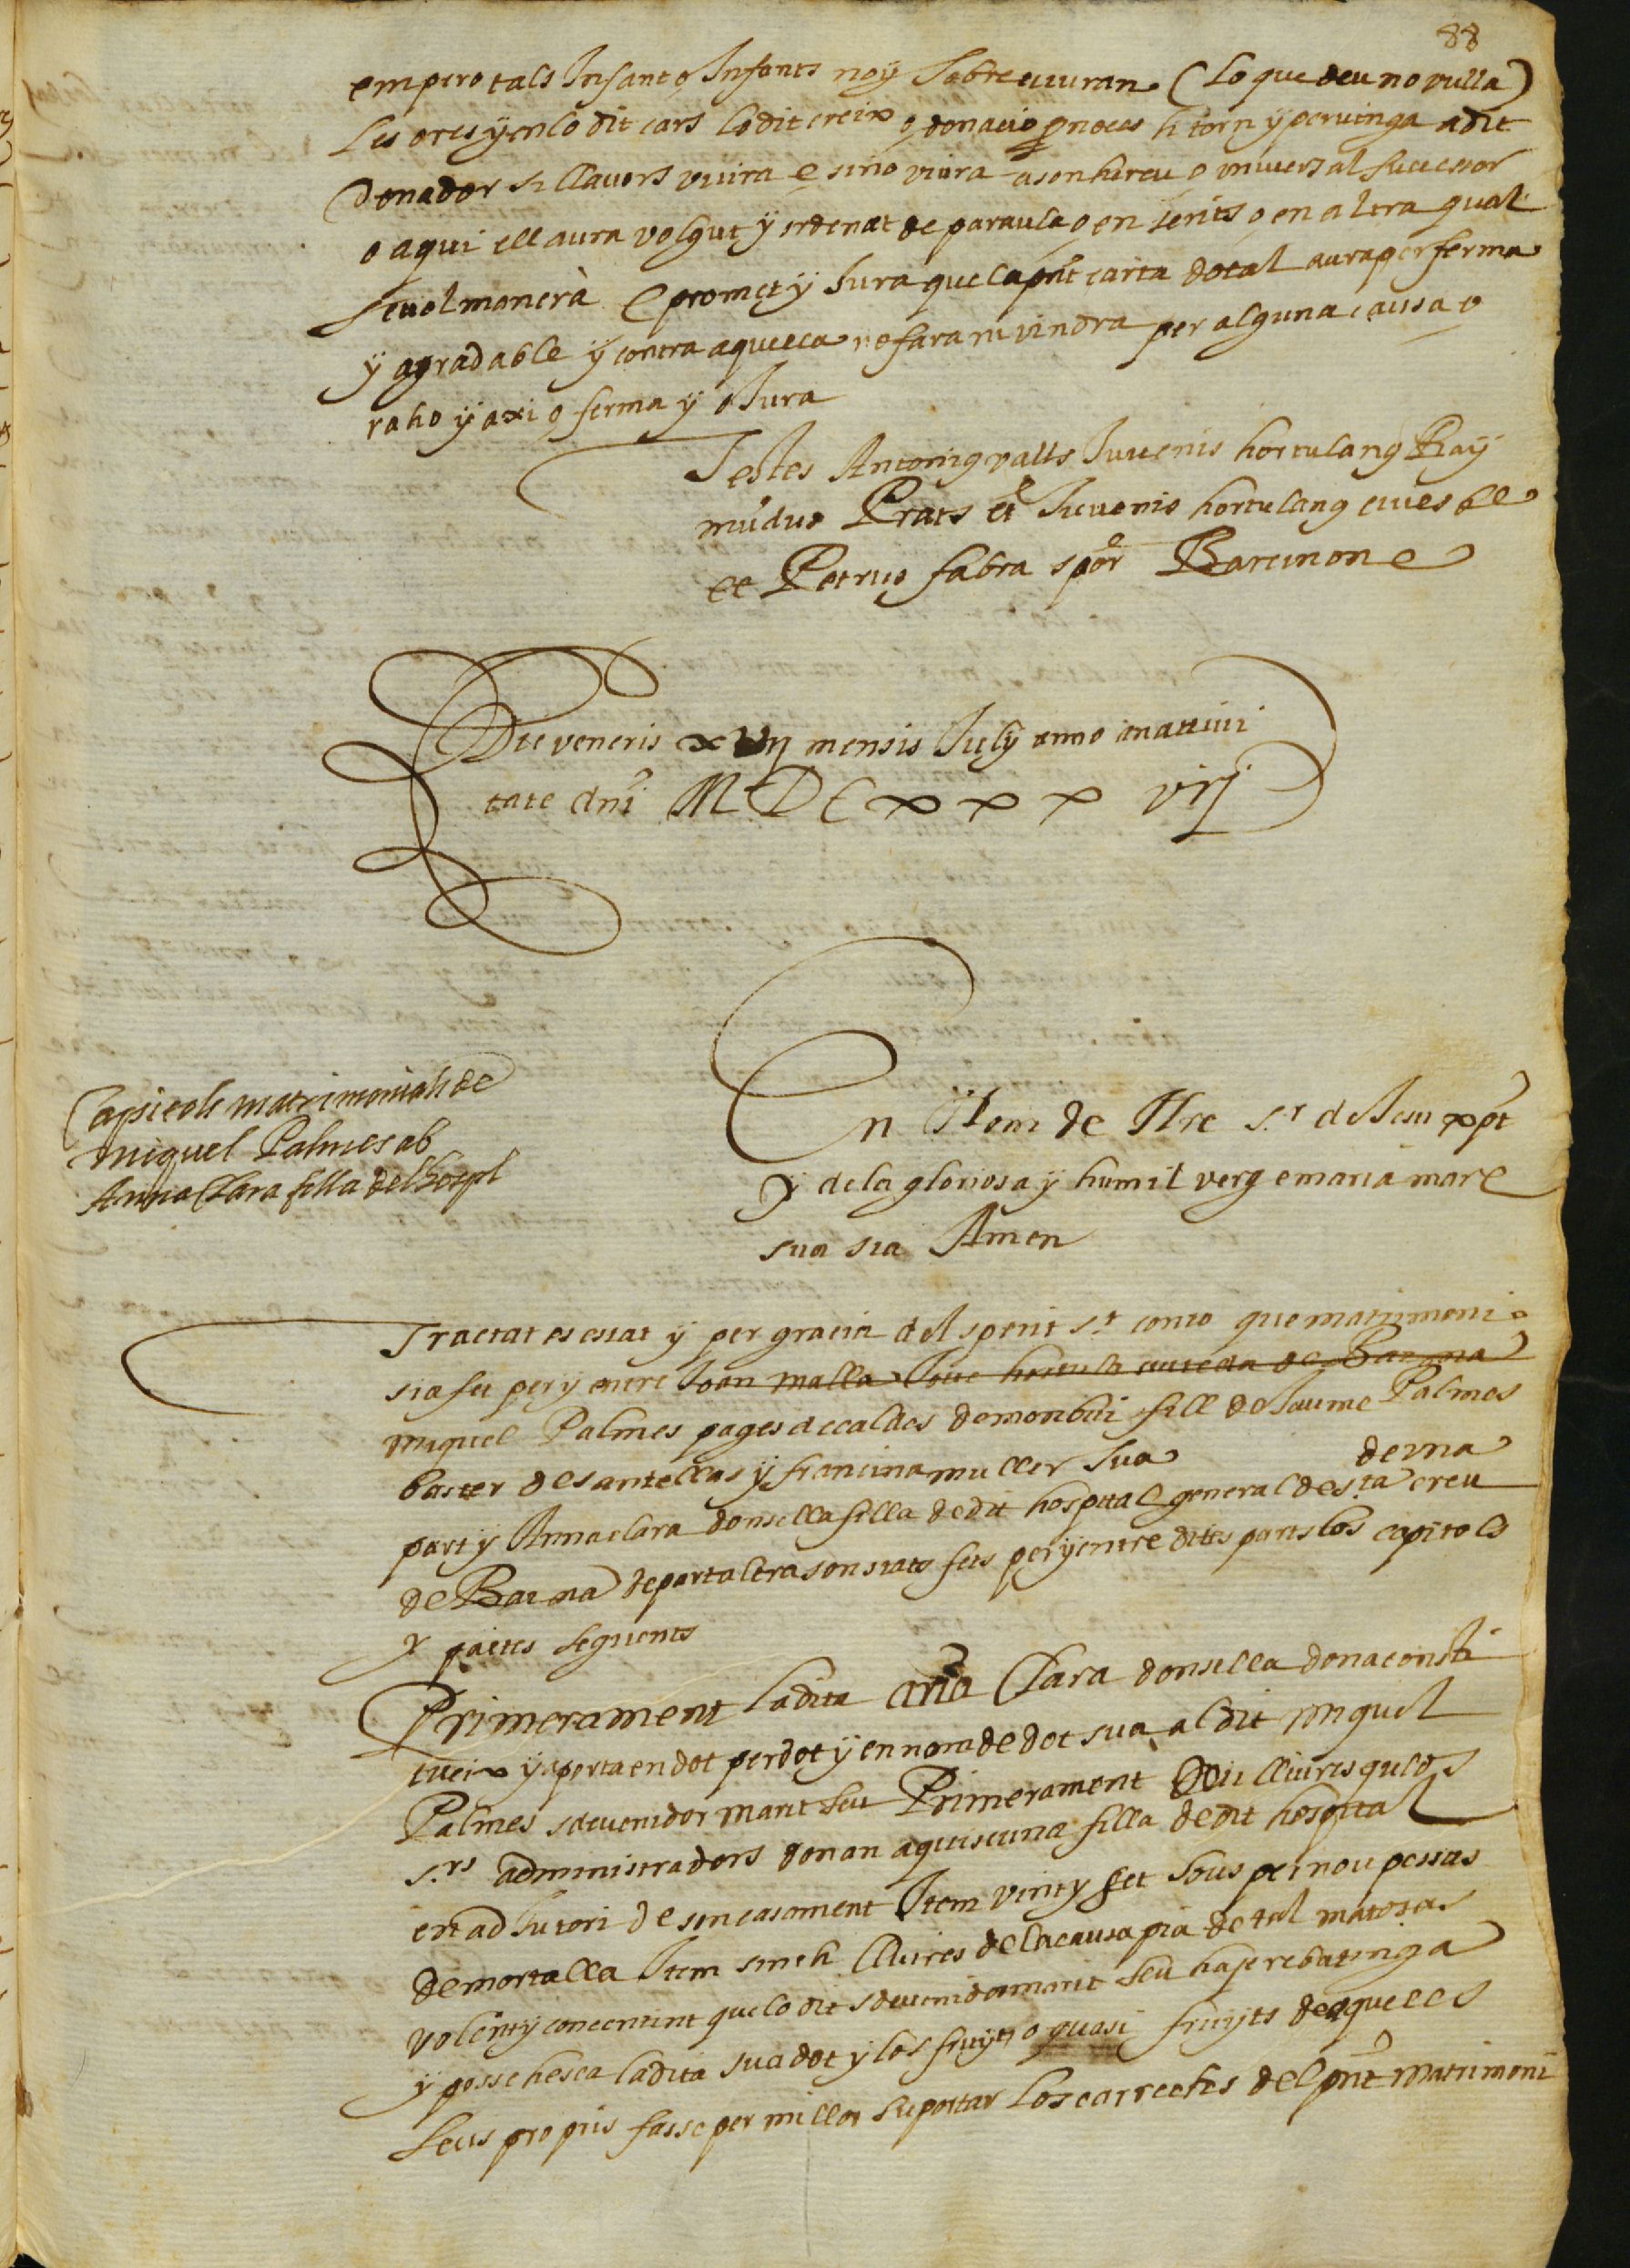 88
empero tals Infant o Infants noÿ Sobreviuran (lo que deu no vulla)
les ores ÿ en lo dit cars lo dit creix o donacio p nocas li torn ÿ pervinga a dit
Donador si llavors viuira e si no viura a son hereu o universal successor
o a qui ell aura volgut ÿ ordenat de paraula o en scrits o en altra qual
sevol manerà E promet ÿ Jura que la pnt carta dotal aura per ferma
ÿ agradable ÿ contra aquella no fara ni vindra per alguna causa o
raho ÿ axi o ferma ÿ o Jura
Testes Antonig valls Juvenis hortulang Raÿ
mudus Prats et Juvenis hortulang cives
et Petrus fabra spor Barcinone
Die veneris xvij mensis Julÿ anno a nativi
tate dni MDCxxx vij
Capitols matrimonials de
Miquel Palmes ab
Anna Clara filla del hospl
En Nom de Nre S.r de Jesu xpt
Y de la gloriosa ÿ humil verge maria mare
sua sia Amen
Tractat es estat ÿ per gracia del sperit s.t como que matrimoni
sia fet per ÿ entre Joan malla Jove hortula de Barna
Miquel Palmes pages de caldes de monbui fill de Jaume Palmes
baster de santellas ÿ francina muller sua de vna
part ÿ Anna clara donsella filla de dit hospital general de s.ta creu
de Barna de part altra son stats fets per ÿ entre dites parts los capitols
Y pactes seguents
Primerament la dita Anna Clara donsella dona consti
tueix ÿ aporta en dot per dot ÿ en nom de dot sua al dit Miquel
Palmes sdevenidor marit seu Primerament lliures que los
S.rs administradors donan a quiscuna filla de dit hospital
en adJutori de son casament Item vint ÿ set sous per nou pessas
de mortalla Item sinch lliures de la causa pia de tal matexas
volent ÿ concentint que lo dit sdevenidor marit seu haje reba tinga
ÿ possehesca la dita sua dot ÿ los fruÿts o quasi fruÿts de aquells
seus propris fasse per millor suportar los carrechs del pnt Matrimoni